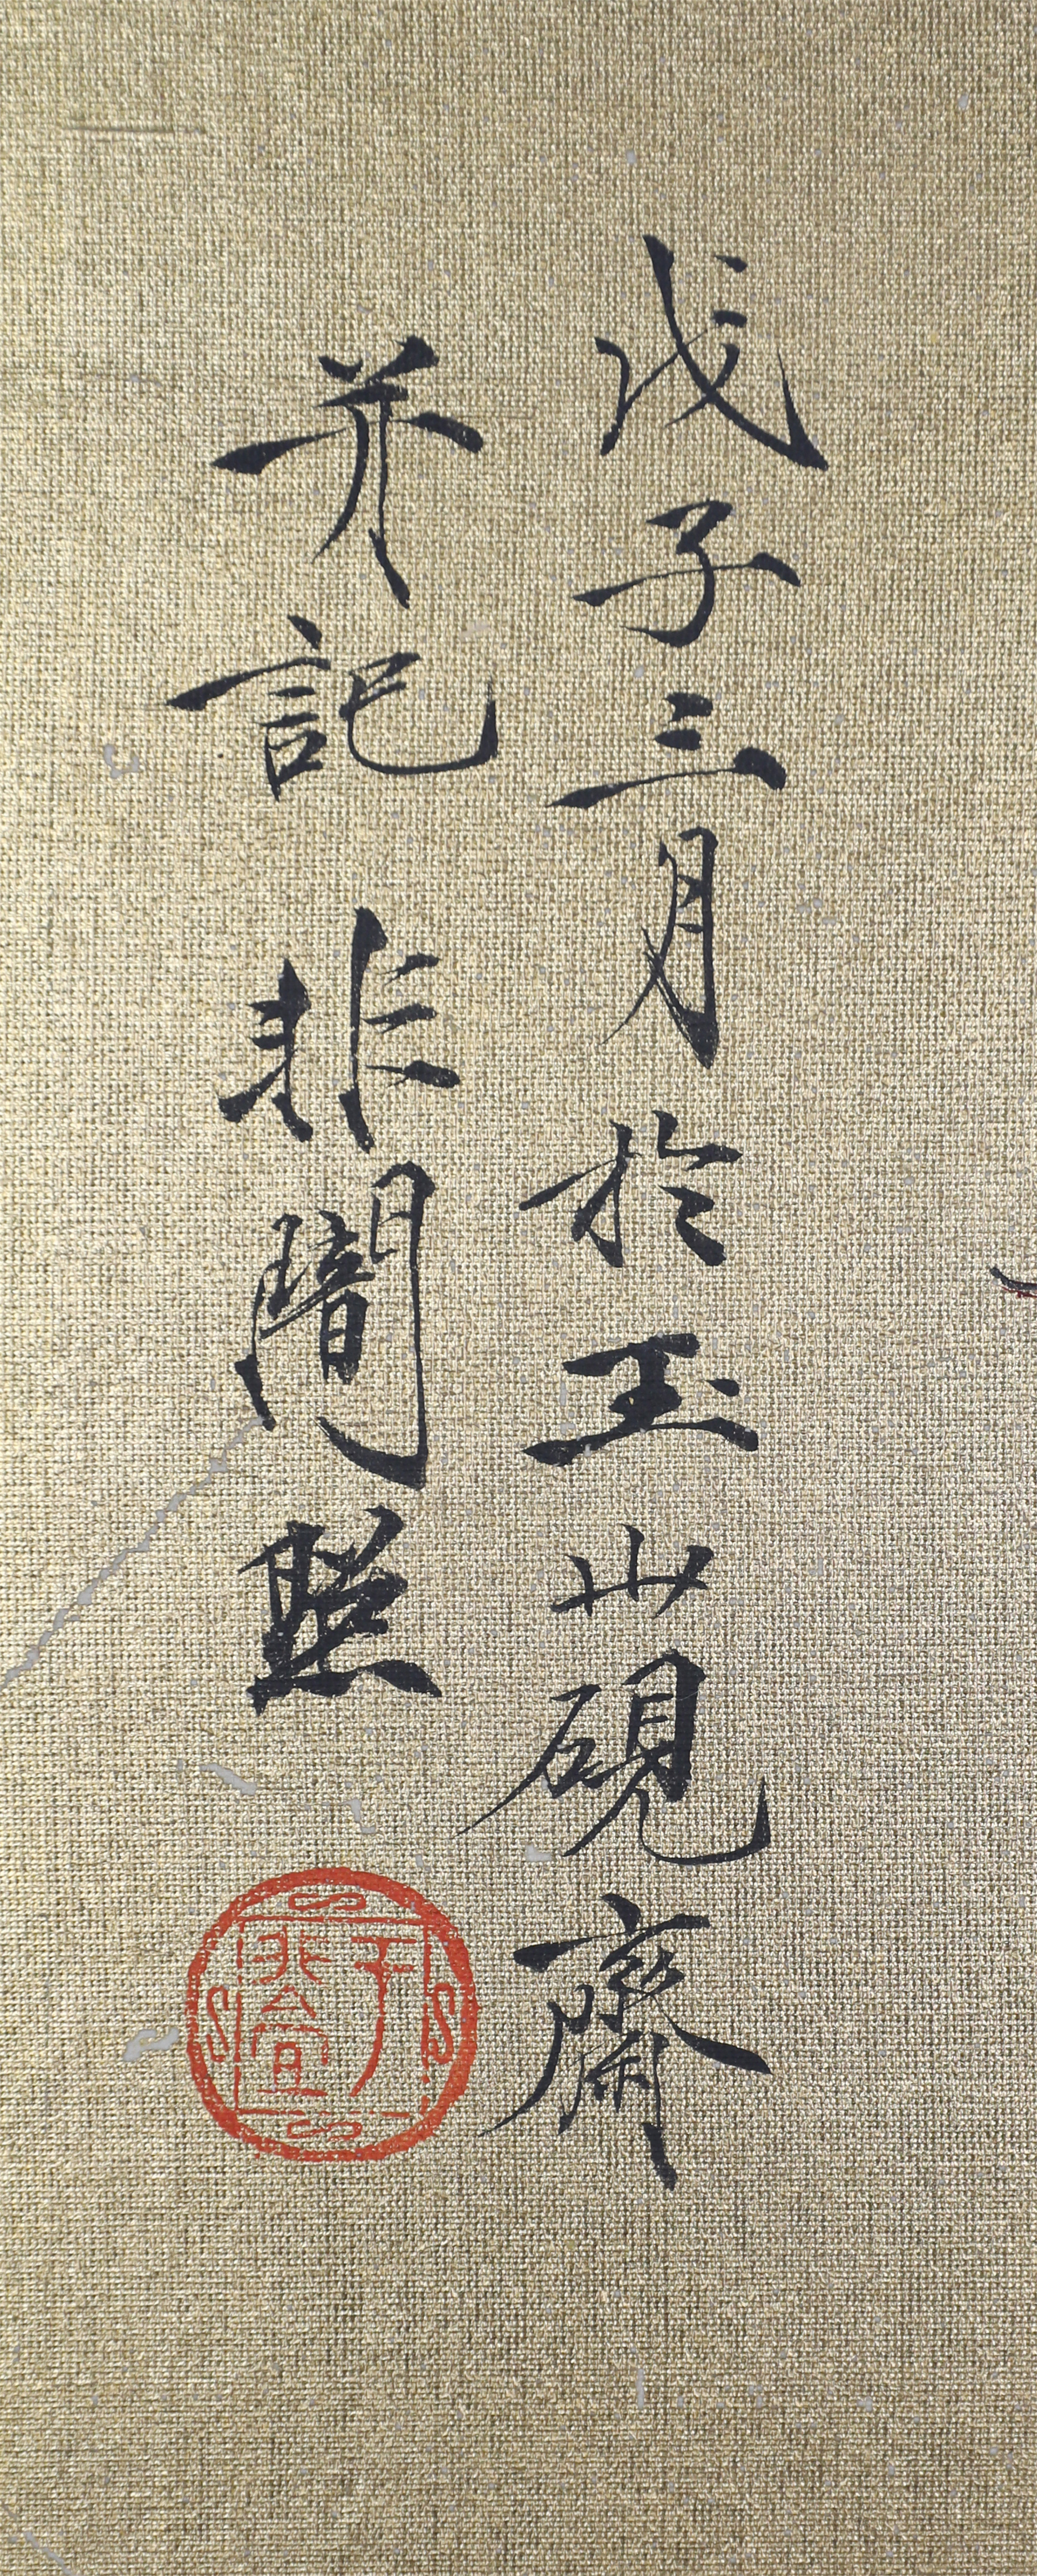 戊子三月於玉山硯齋
并記非闇照
于非厂